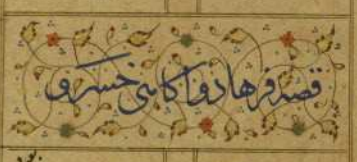 قصه فرهاد و آگاهی خسرو
بود